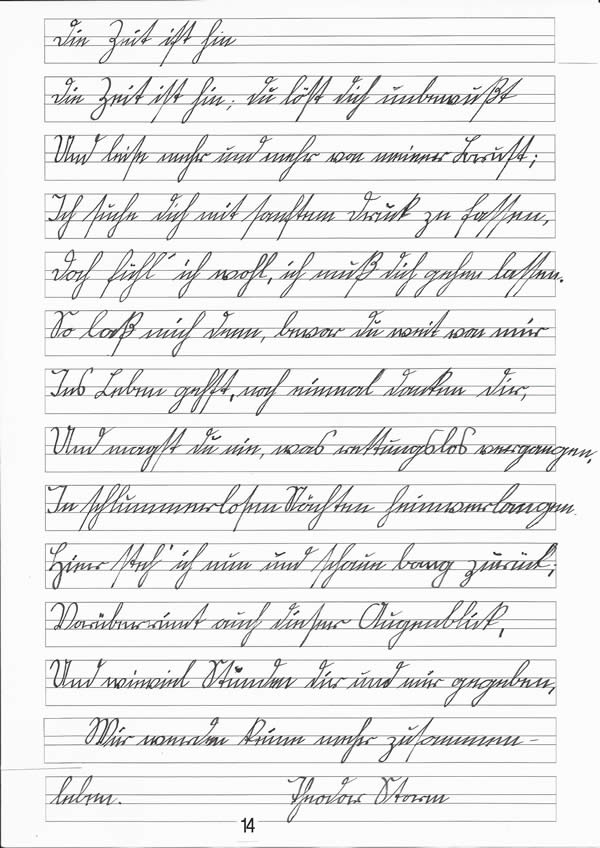 Die Zeit ist hin
Die Zeit ist hin; du löst dich unbewußt
Und leise mehr und mehr von meiner Brust;
Ich suche dich mit sanftem Druck zu fassen,
Doch fühl' ich wohl, ich muß dich gehen lassen.
So laß mich denn, bevor du weit von mir
Ins Leben gehst, noch einmal danken dir,
Und magst du nie, was rettungslos vergangen,
In schlummerlosen Nächten heimverlangen.
Hier steh' ich nun und schaue bang zurück;
Vorüberrinnt auch dieser Augenblick,
Und wieviel Stunden dir und mir gegeben,
Wir werden keine mehr zusammen-
leben. Theodor Storm
14